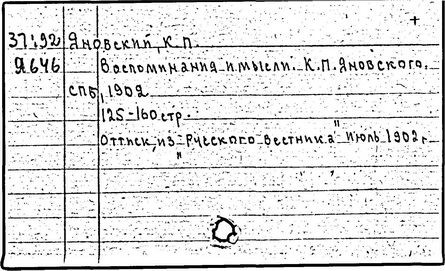 +
37:92 Яновский, К.П.
Я646 Воспоминания и мысли. К.П. Яновского.
СПБ, 1902
125-160 стр.
Оттиск из "Русского вестника" июль 1902 г